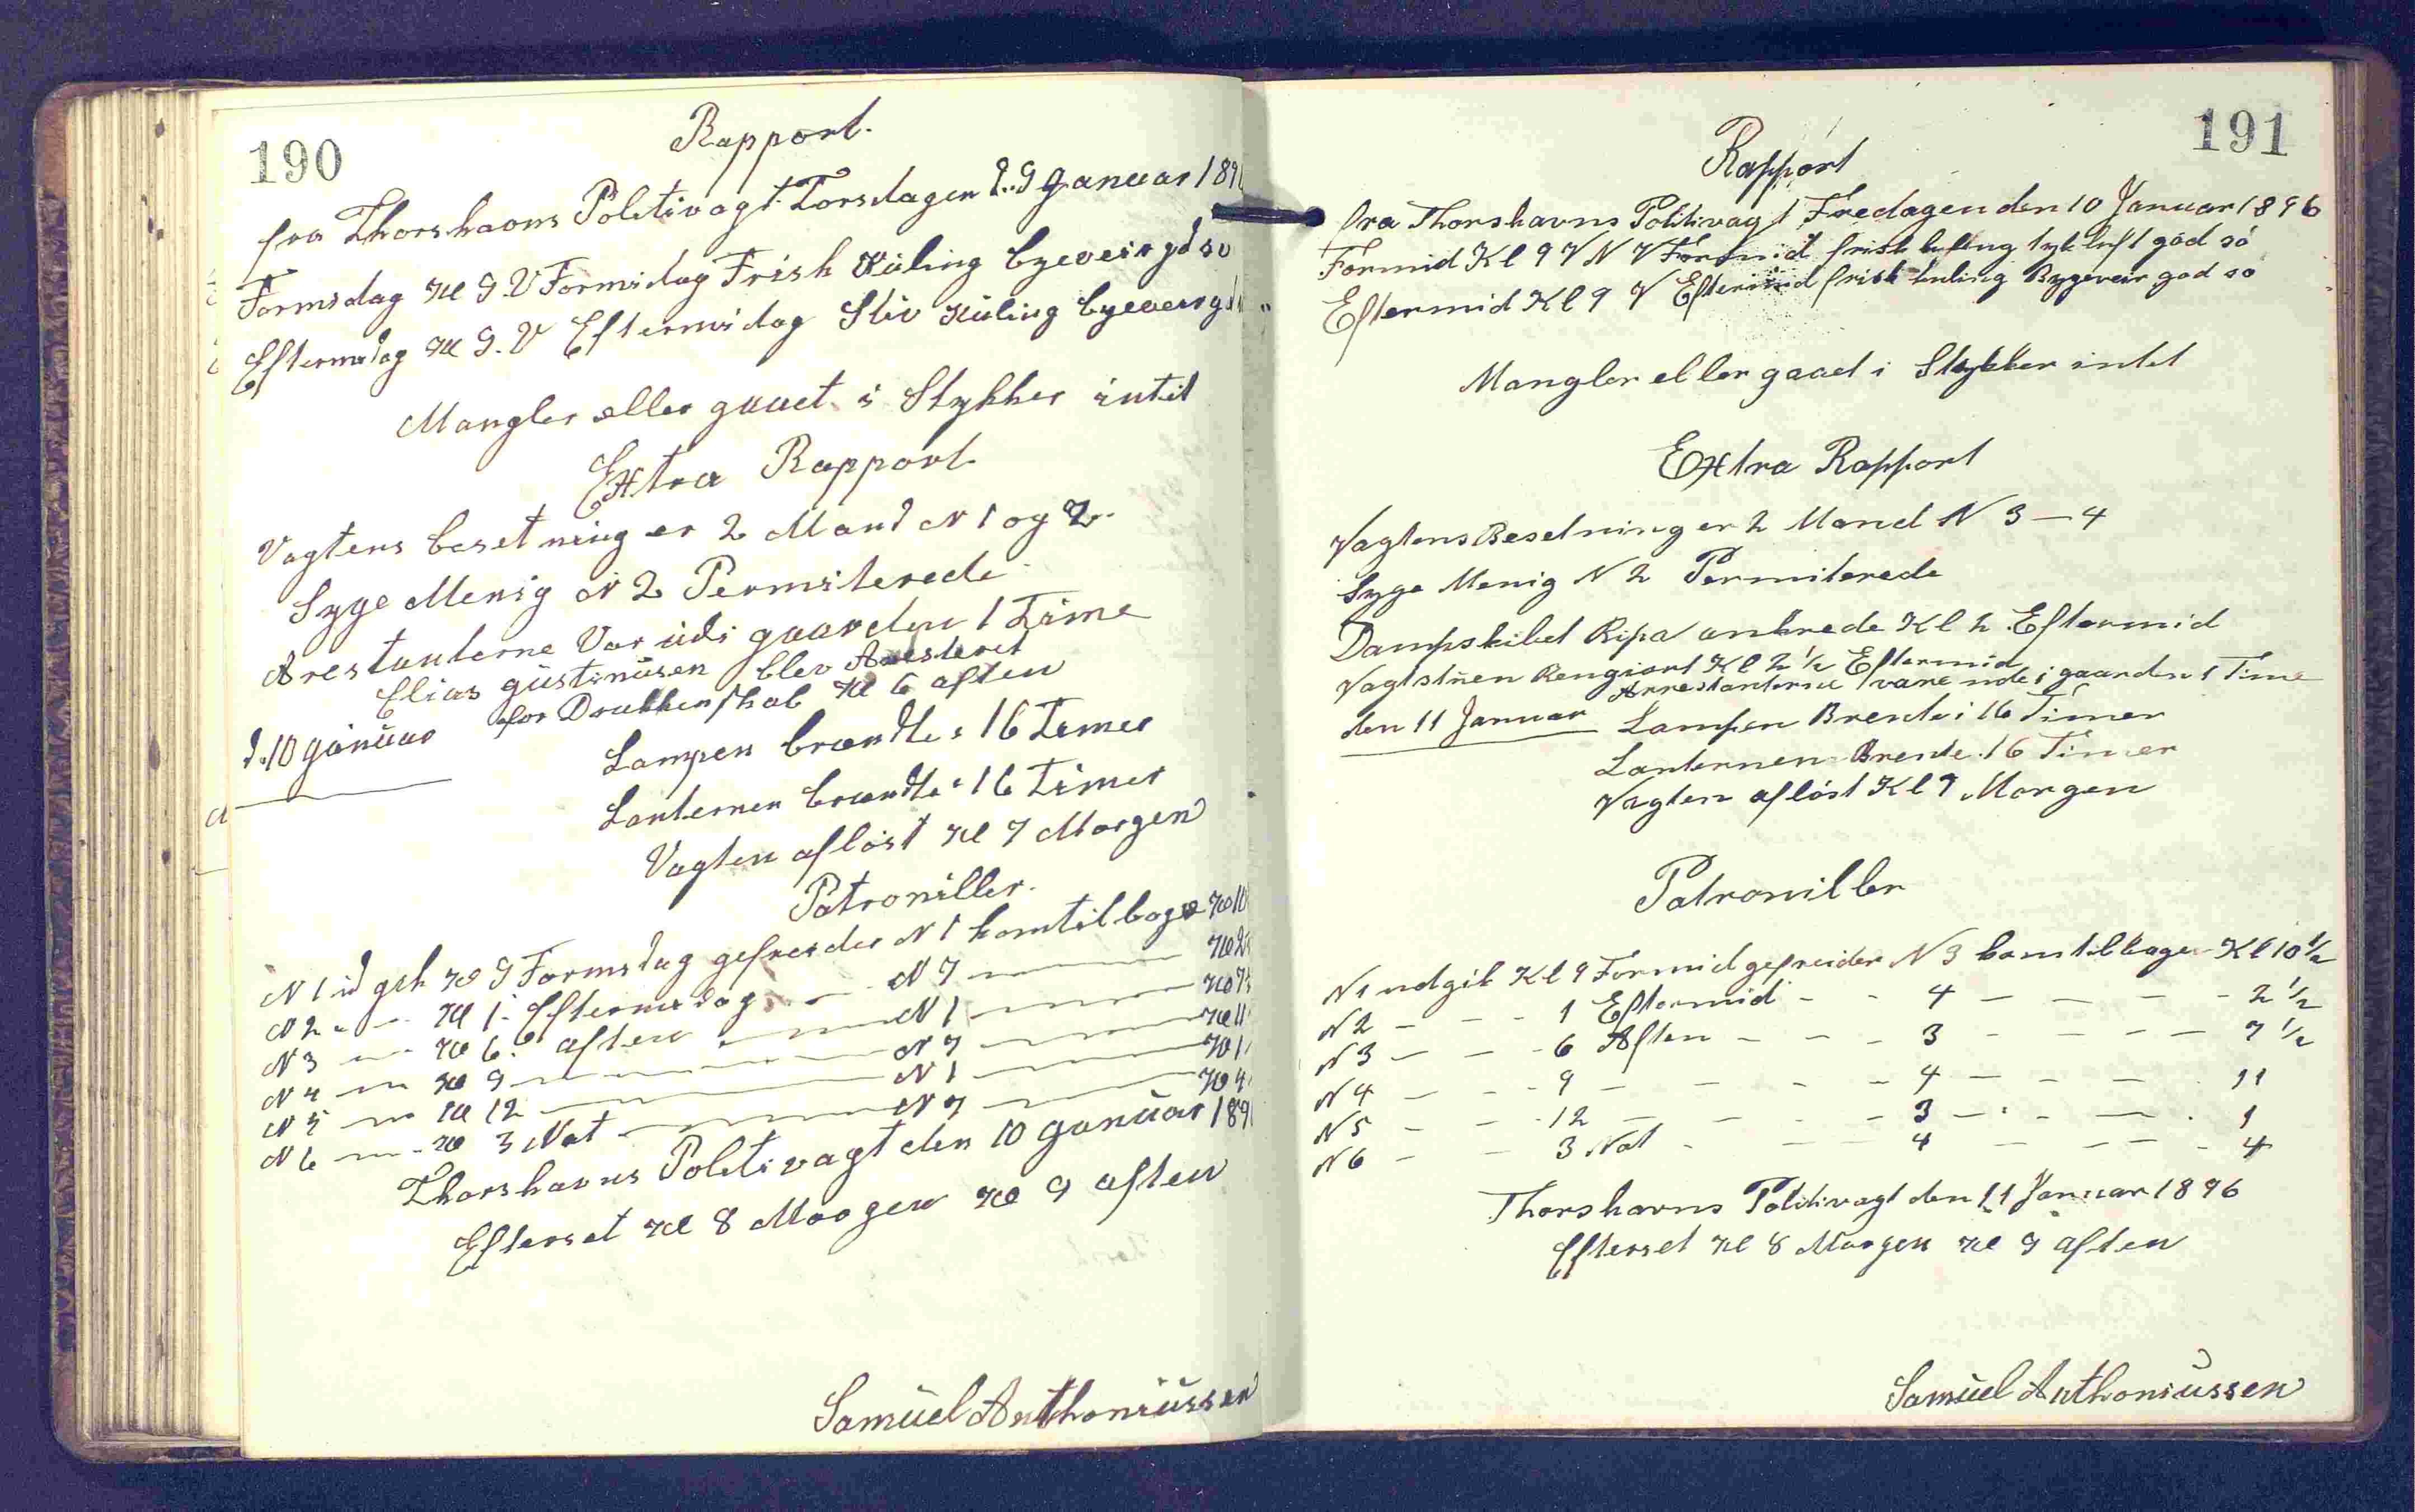 190
Rapport.
fra Thorshavns Politivagt Torsdagen d. 9 Januar 189
Formidag Kl 9. V Formidag Frisk Küling byeveir gd sö
Eftermidag Kl 9. V Eftermidag Stiv Küling byeveir gd
Mangler eller gaaet i Stykker intet
Extra Rapport
Vagtens besetning er 2 Mand N 1 og 7
Syge Menig N 2 Permiterede
Arestanterne Var üdi gaarden 1 Time
Elias güstinüsen blev Aresteret
for Drukkenskab Kl 6 aften
d. 10 Januar
Lampen brændte i 16 Timer
Lanternen brændte i 16 Timer
Vagten aflöst Kl 7 Morgen
Patroniller.
N 1 üdgik Kl 9 Formidag gefreider N 1 kom tilbage Kl 10
N 2 - - Kl 1 - Eftermidag - N 7 - Kl 2
N 3 - Kl 6 - aften - N 1 - Kl 7
N 4 - Kl 9 - N 7 - Kl 11
N 5 - Kl 12 - N 1 - Kl 1
N 6 - Kl 3 Nat - N 7 - Kl 4
Thorshavns Politivagt den 10 Januar 189
Efterset Kl 8 Morgen Kl 9 aften
Samüel Anthoniüssen
191
Rapport
fra Thorshavns Politivagt Fredagen den 10 Januar 1896
Formid Kl 9 V N V Formid frisk kuling tyk luft god sö
Eftermid Kl 9 V Eftermid frisk kuling Bygeveir god so
Mangler eller gaaet i Stykker intet
Extra Rapport
Vagtens Besetning er 2 Mand N 3 — 4
Syge Menig N 2 Permiterede
Dampskibet Ripa ankrede Kl 2 Eftermid
Vagtstüen Rengiort Kl 2 1/2 Eftermid
Arrestanterne vare ude i gaarden 1 Time
den 11 Januar Lampen Brente i 16 Timer
Lanternen Brente 16 Timer
Vagten aflöst Kl 7 Morgen
Patroniller
N 1 udgik Kl 9 Formid gefreider N 3 kom tilbage Kl 10 1/2
N 2 - - - 1 Eftermid - - 4 - - - - 2 1/2
N 3 - - - 6 Aften - - - 3 - - - - 7 1/2
N 4 - - - 9 - - - - 4 - - - - 11
N 5 - - - 12 - - - - 3 - - - - 1
N 6 - - 3 Nat - - - 4 - - - - 4
Thorshavns Politivagt den 11 Januar 1896
Efterset Kl 8 Morgen Kl 9 aften
Samüel Anthoniüssen